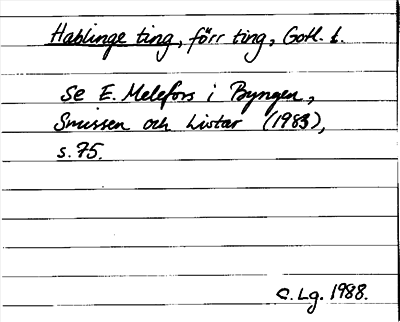 Hablinge ting, förr ting, Gotl. l.
Se E. Melefors i Byngen,
Smissen och Listar (1983),
s. 75.
C. Lg. 1988.